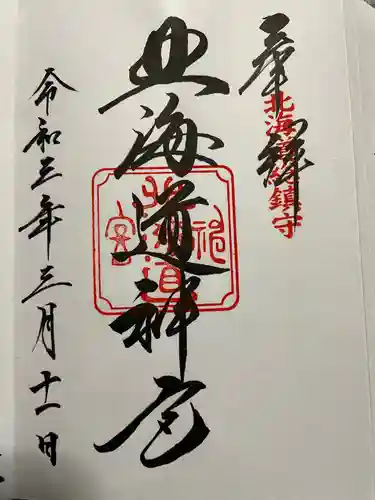 奉拝
北海道総鎮守
北海道神宮
北海道神宮
令和三年三月十一日